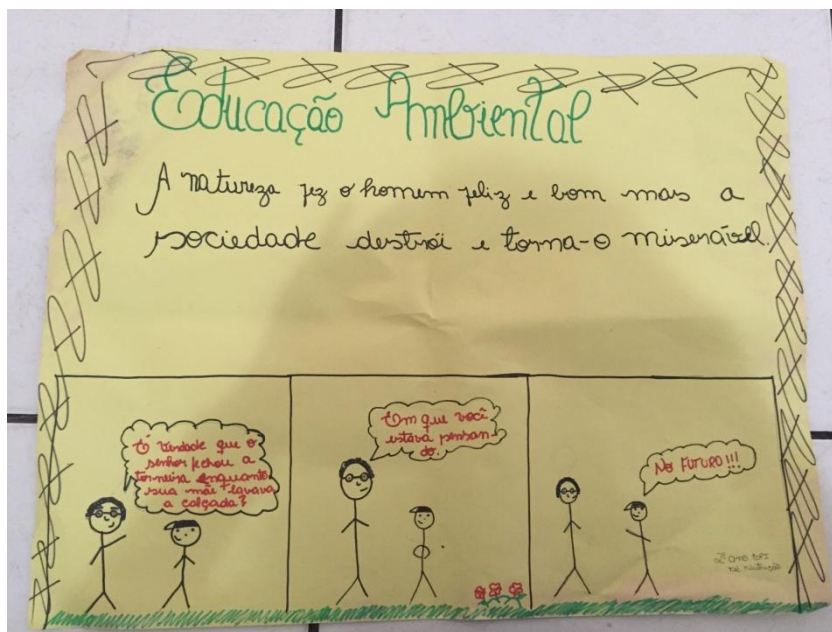 Educação Ambiental
A natureza fez o homem feliz e bom mas a
sociedade destroi e torna-o miserável.
É verdade que o
senhor fechou a
torneira enquanto
sua mãe lavava
a calçada?
Em que você
estava pensan-
do.
No FUTURO!!!
2º ano